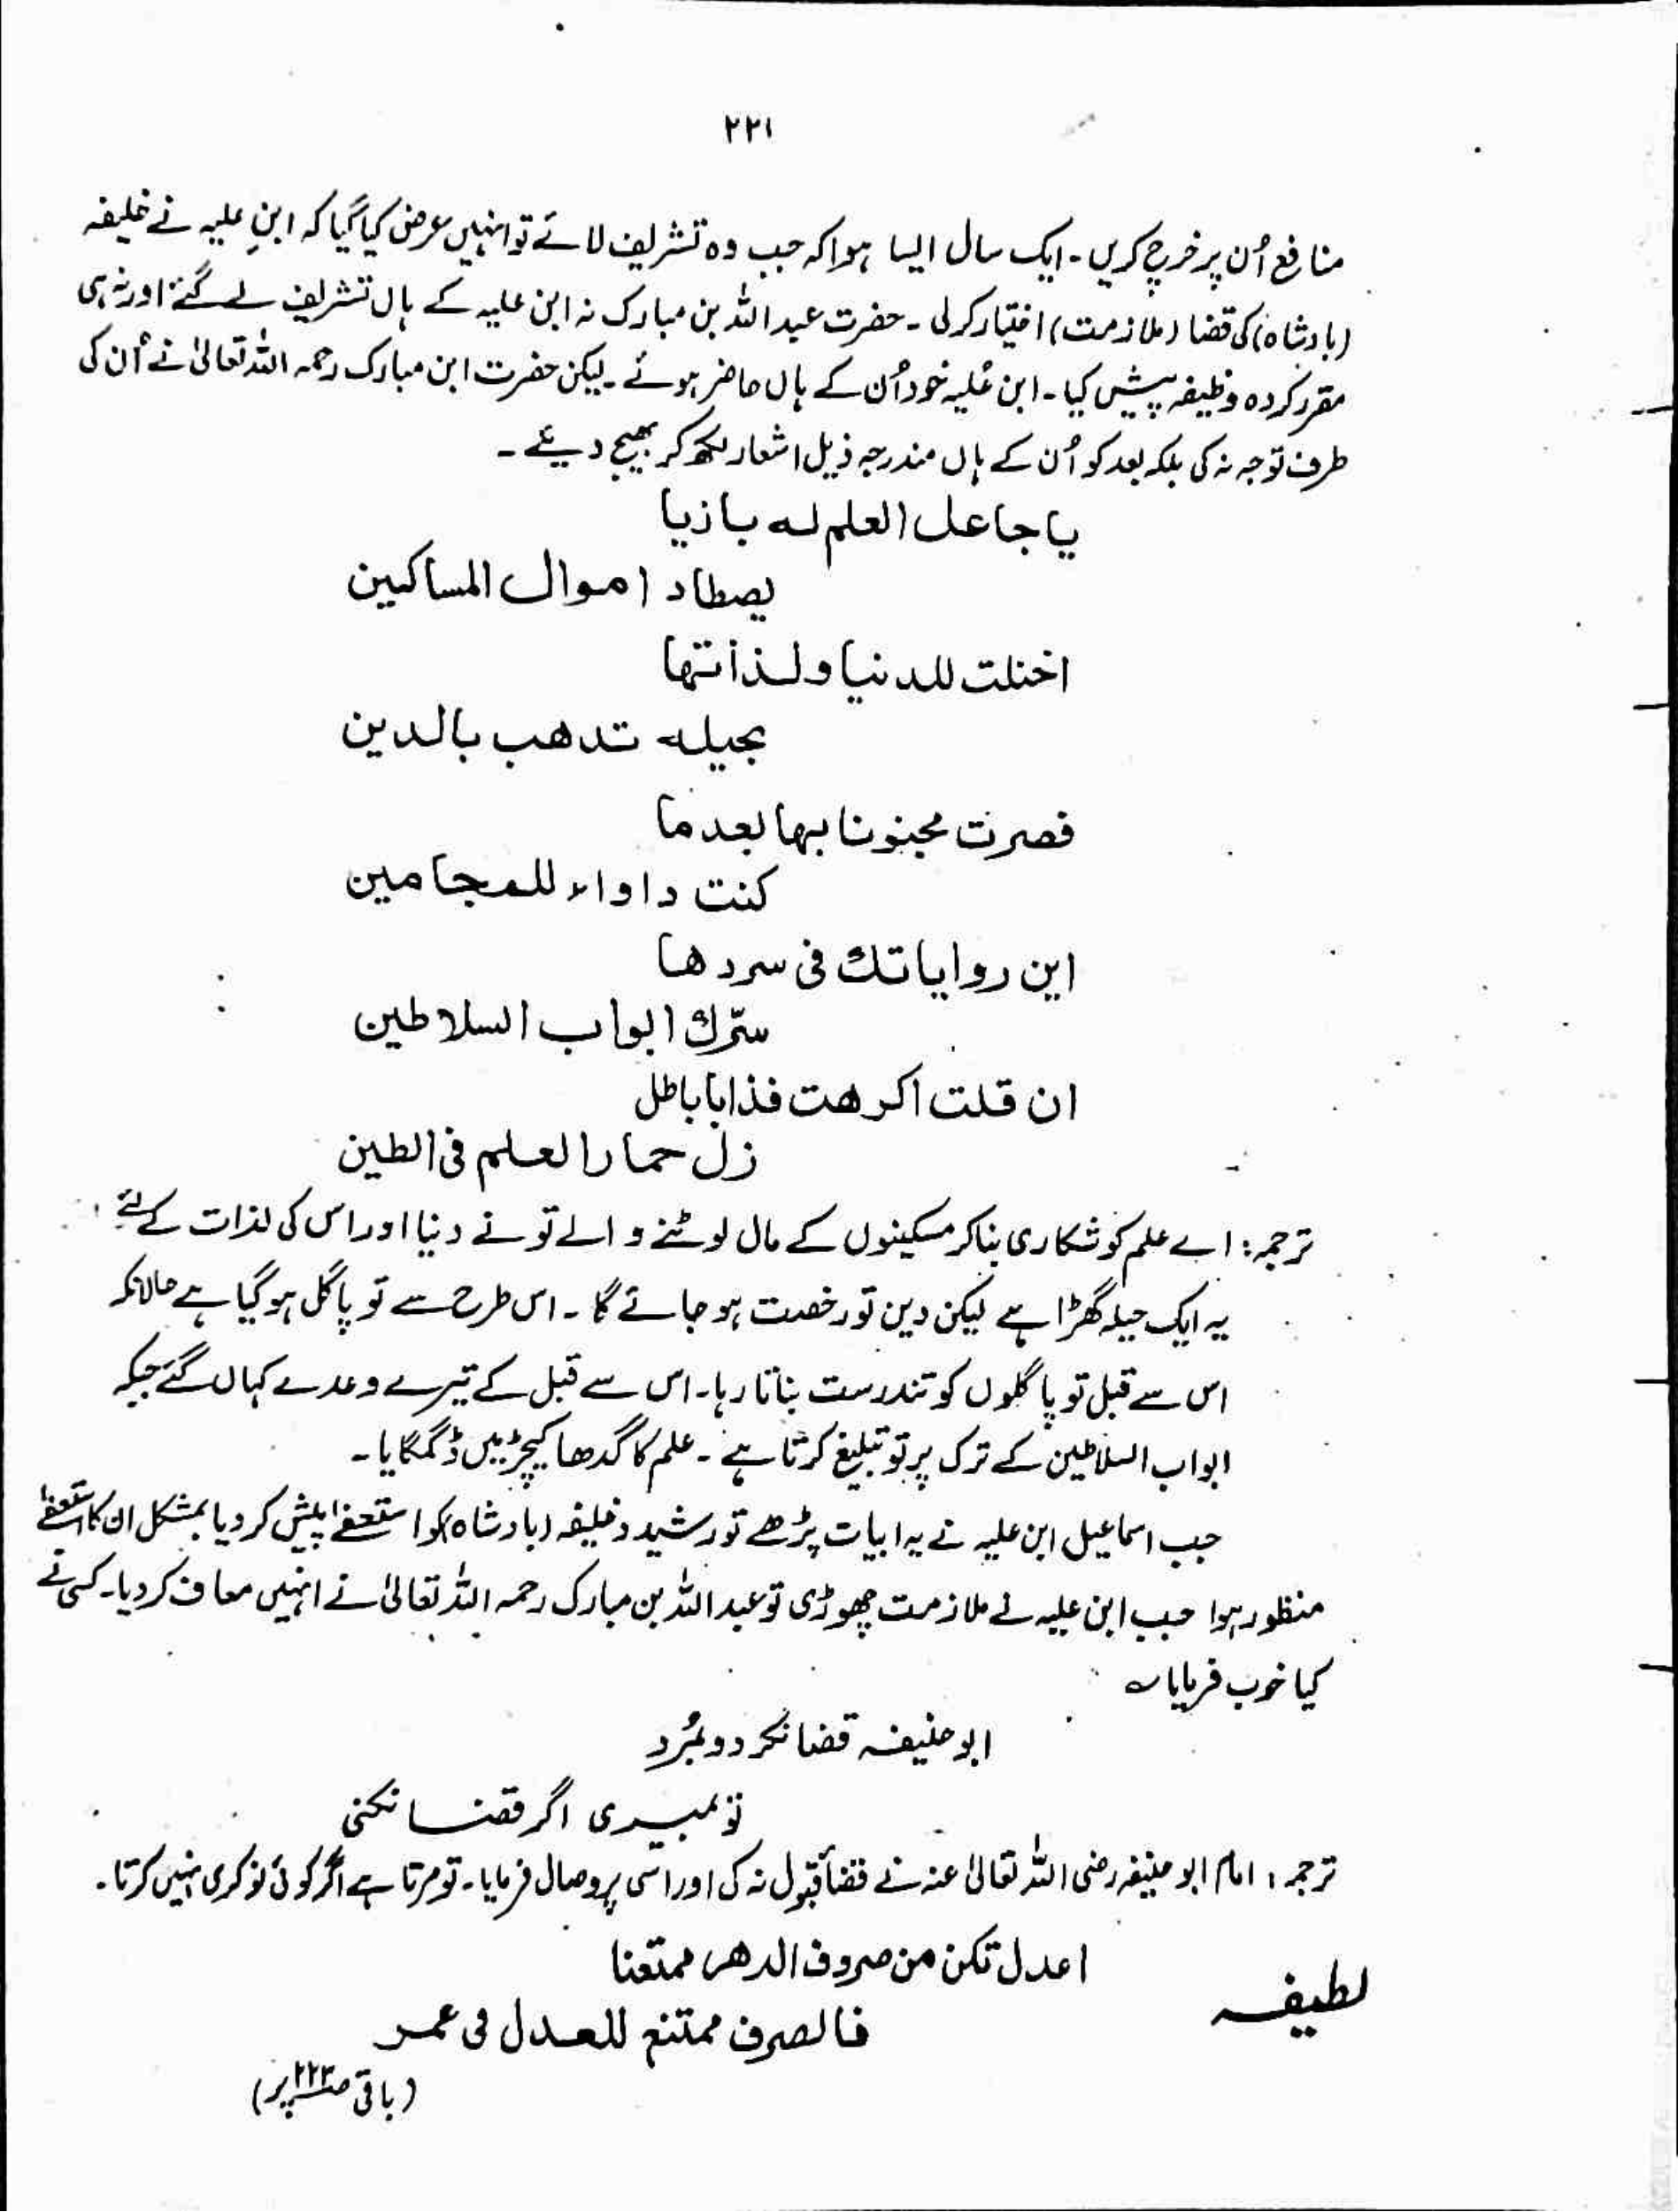 ۲۲۱
منافع اُن پر خرچ کریں ۔ ایک سال ایسا ہوا کہ جب وہ تشریف لائے تو انہیں عرض کیا گیا کہ ابنِ علیہ نے خلیفہ
(بادشاہ) کی قضا (ملازمت) اختیار کرلی ۔ حضرت عبداللہ بن مبارک نہ ابن علیہ کے ہاں تشریف لے گئے اور نہ ہی
مقرر کردہ وظیفہ پیش کیا ۔ ابن عُلیہ خود اُن کے ہاں حاضر ہوئے ۔ لیکن حضرت ابن مبارک رحمہ اللہ تعالیٰ نے اُن کی
طرف توجہ نہ کی بلکہ بعد کو اُن کے ہاں مندرجہ ذیل اشعار لکھ کر بھیج دیئے ۔
یا جاعل العلم لہ بازیا
یصطاد اموال المساکین
اختلت للدنیا ولذاتها
بحیلہ تدھب بالدین
فصرت مجنونا بها بعد ما
کنت داواء للمجامین
این روایاتك فی سردها
سترك ابواب السلاطین
ان قلت اکرھت فذا باباطل
زل حمار العلم فی الطین
ترجمہ : اے علم کو شکاری بنا کر مسکینوں کے مال لوٹنے والے تو نے دنیا اور اس کی لذات کے لئے
یہ ایک حیلہ گھڑا ہے لیکن دین تو رخصت ہو جائے گا ۔ اس طرح سے تو پاگل ہو گیا ہے حالانکہ
اس سے قبل تو پاگلوں کو تندرست بناتا رہا ۔ اس سے قبل کے تیرے وعدے کہاں گئے جبکہ
ابواب السلاطین کے ترک پر تو تبلیغ کرتا ہے ۔ علم کا گدھا کیچڑ میں ڈگمگایا ۔
جب اسماعیل ابن علیہ نے یہ ابیات پڑھے تو رشید خلیفہ (بادشاہ) کو استعفےٰ پیش کر دیا بمشکل ان کا استعفےٰ
منظور ہوا جب ابن علیہ نے ملازمت چھوڑی تو عبداللہ بن مبارک رحمہ اللہ تعالیٰ نے انہیں معاف کر دیا ۔ کسی نے
کیا خوب فرمایا ؎
ابو حنیفہ قضا نکرد و بمُرد
تو بمیری اگر قضا نکنی
ترجمہ : امام ابو حنیفہ رضی اللہ تعالیٰ عنہ نے قضأ قبول نہ کی اور اسی پر وصال فرمایا ۔ تو مرتا ہے اگر کوئی نوکری نہیں کرتا ۔
لطیفہ
اعدل تکن من صروف الدھر ممتعنا
فالصرف ممتنع للعدل فی عمر
(باقی صـ۲۲۳ پر)